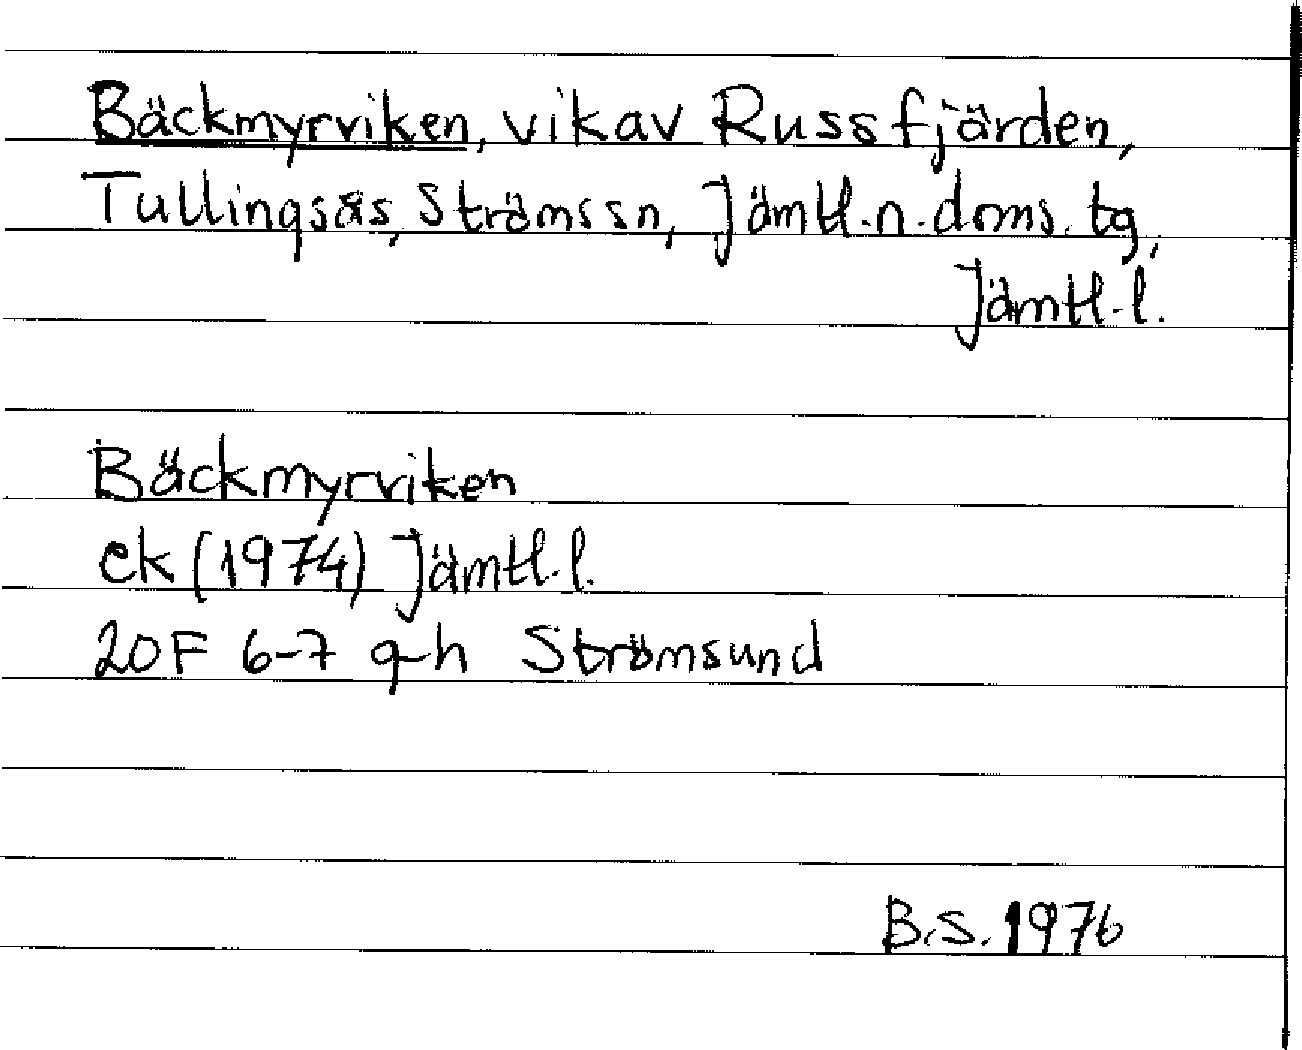 Bäckmyrviken, vik av Russfjärden,
Tullingsås, Ströms sn, Jämtl. n. doms. tg,
Jämtl. l.
Bäckmyrviken
ek (1974) Jämtl. l.
20F 6-7 g-h Strömsund
B.S. 1976